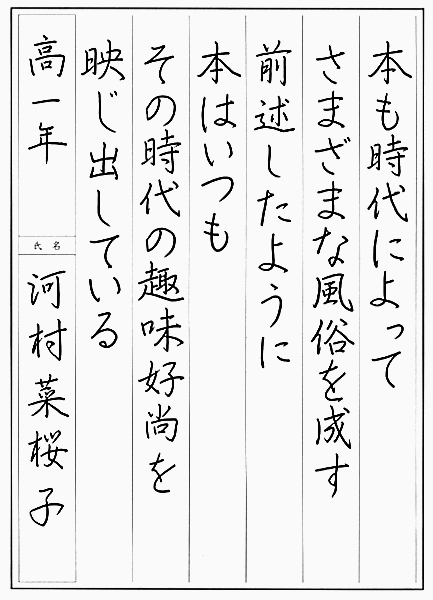 本も時代によって
さまざまな風俗を成す
前述したように
本はいつも
その時代の趣味好尚を
映じ出している
高一年
氏名
河村菜桜子